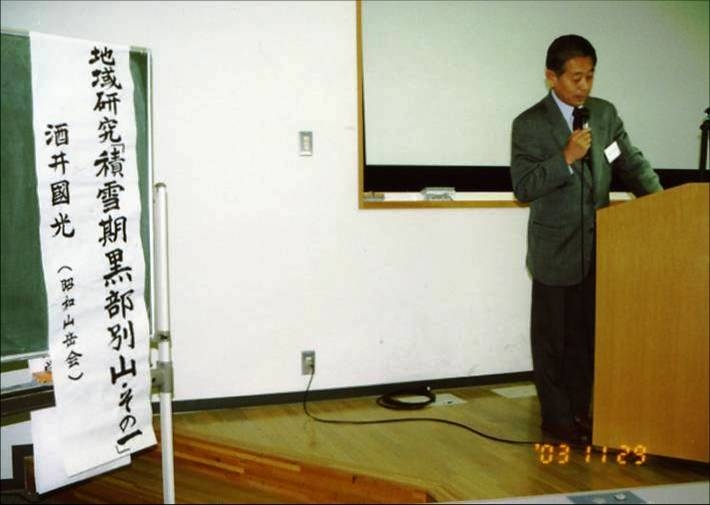 地域研究「積雪期黒部別山・その一」
酒井國光
（昭和山岳会）
'03 11 29